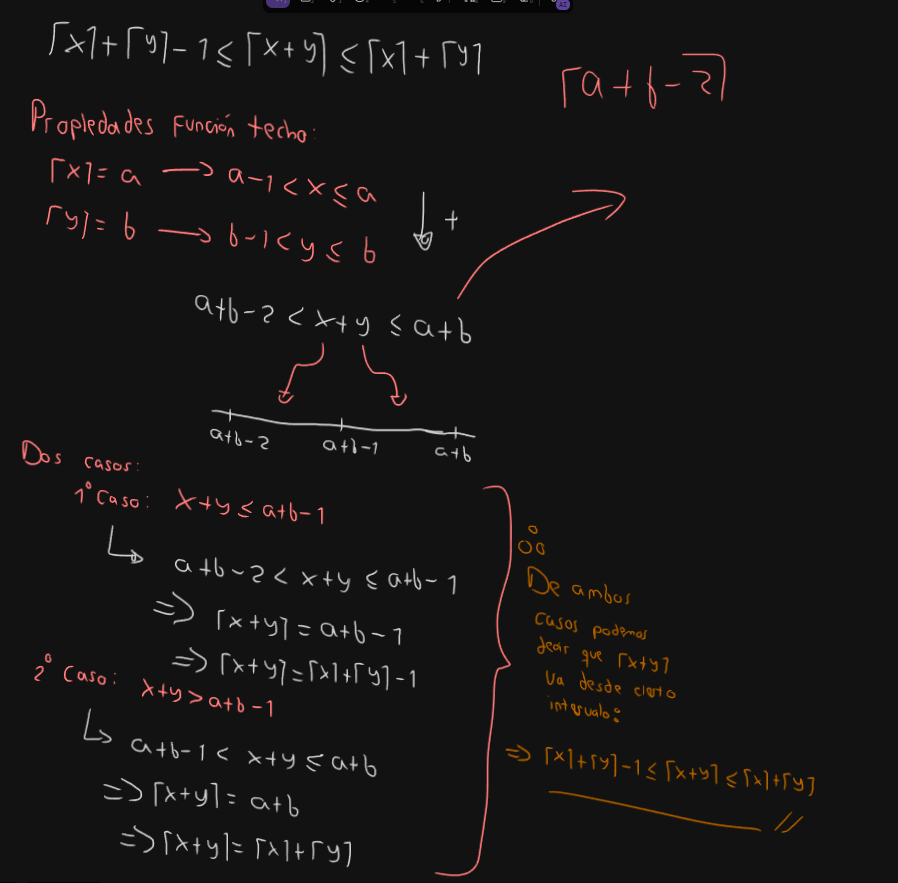 ⌈x⌉+⌈y⌉-1≤⌈x+y⌉≤⌈x⌉+⌈y⌉
⌈a+b-2⌉
Propiedades Función techo:
⌈x⌉= a → a-1<x≤a
⌈y⌉= b → b-1<y≤ b
↓+
a+b-2 < x+y ≤ a+b
a+b-2 a+b-1 a+b
Dos casos:
1° Caso: x+y≤a+b-1
a+b-2 < x+y ≤ a+b-1
=> ⌈x+y⌉ = a+b-1
=> ⌈x+y⌉=⌈x⌉+⌈y⌉-1
2° Caso: x+y>a+b-1
a+b-1 < x+y ≤ a+b
=> ⌈x+y⌉= a+b
=> ⌈x+y⌉= ⌈x⌉+⌈y⌉
∴
De ambos
casos podemos
decir que ⌈x+y⌉
va desde cierto
intervalo:
=> ⌈x⌉+⌈y⌉-1≤⌈x+y⌉≤⌈x⌉+⌈y⌉
//